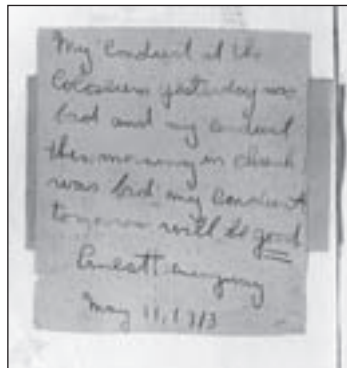 My conduct at the
Coloseum yesterday was
bad and my conduct
this morning in church
was bad my conduct
tomorrow will be good
Ernest Hemingway
May 11, 1913